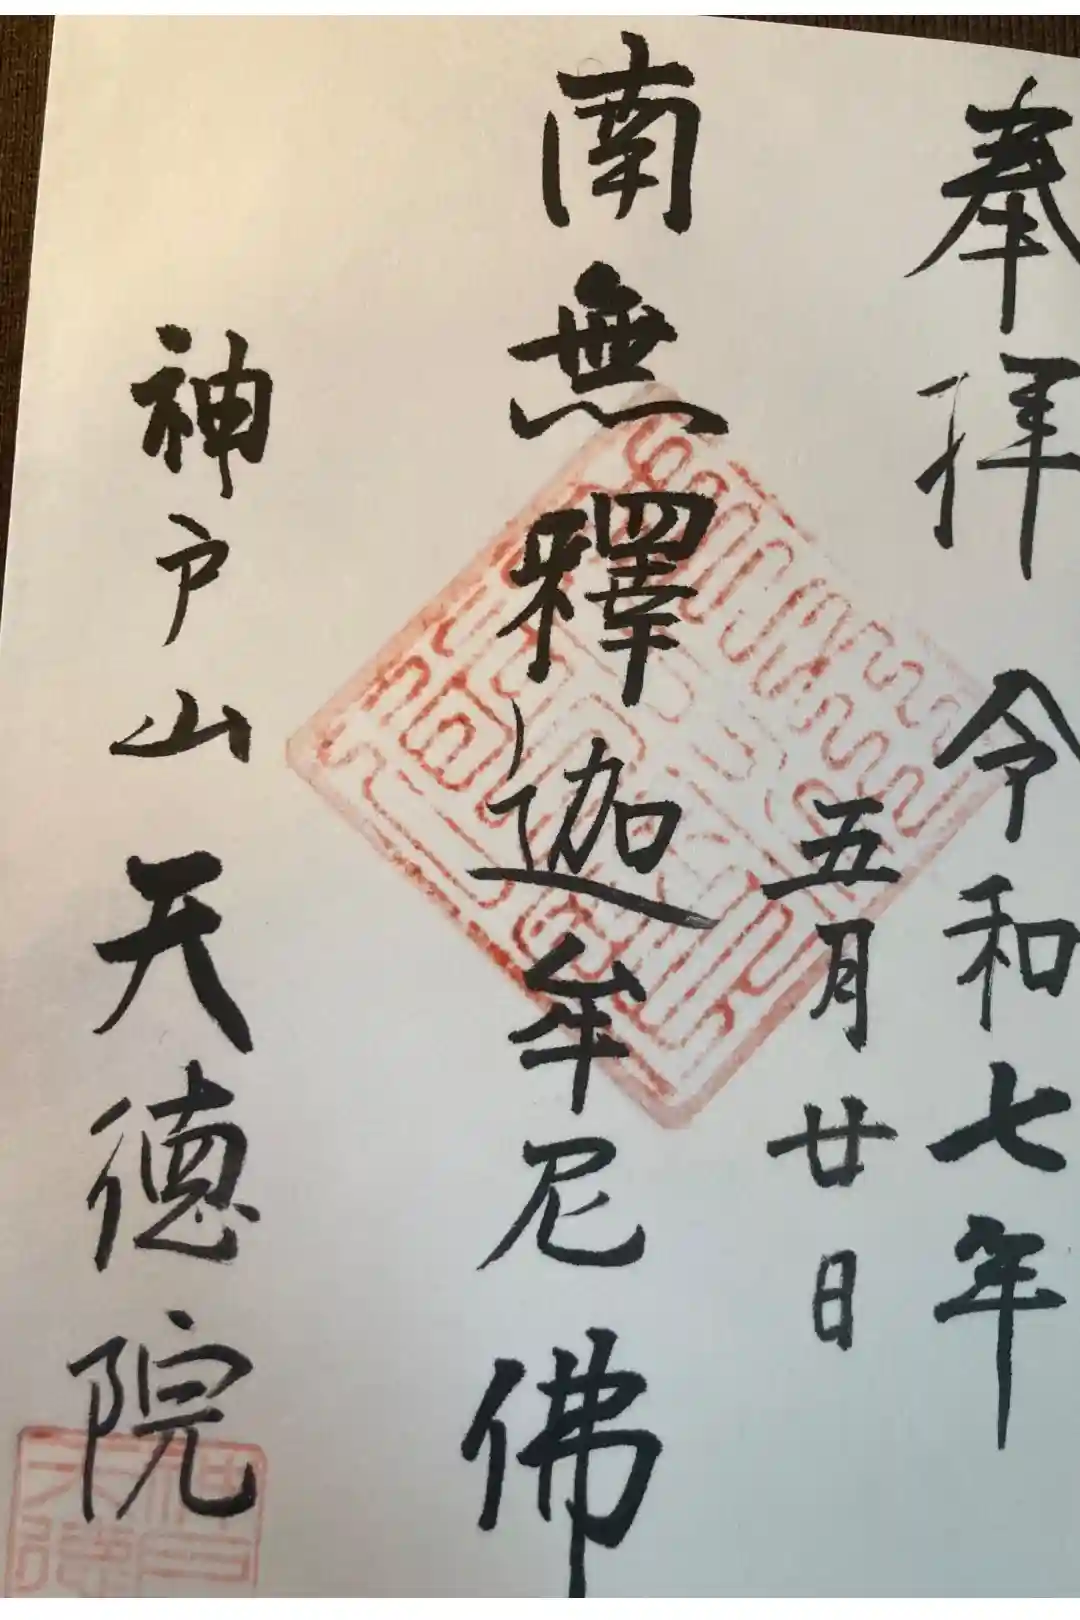 奉拝 令和七年
五月廿日
南無釋迦牟尼佛
神戸山天徳院